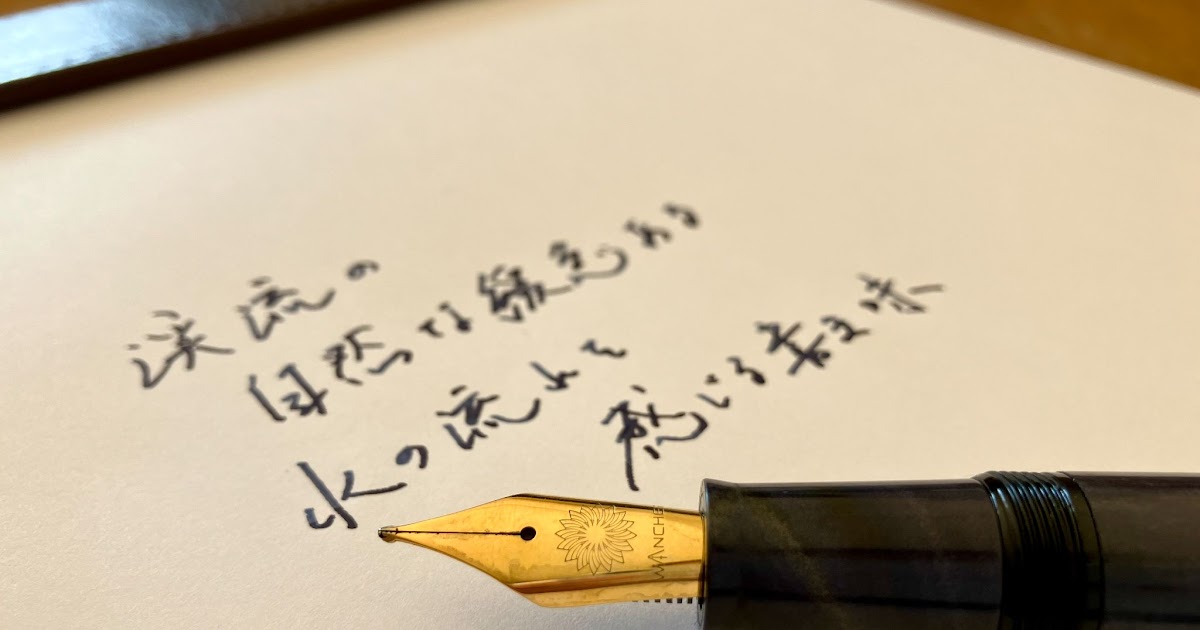 渓流の
自然な緩急ある
水の流れを
感じる素文味
WANCHE